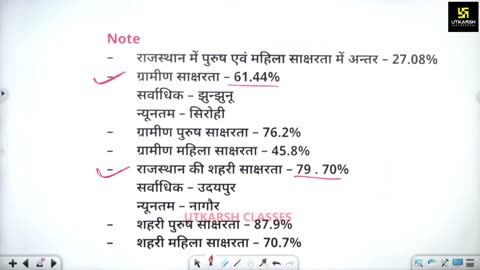 UTKARSH CLASSES
Note
- राजस्थान में पुरुष एवं महिला साक्षरता में अन्तर – 27.08%
- ग्रामीण साक्षरता – 61.44%
सर्वाधिक – झुन्झुनू
न्यूनतम – सिरोही
- ग्रामीण पुरुष साक्षरता – 76.2%
- ग्रामीण महिला साक्षरता – 45.8%
- राजस्थान की शहरी साक्षरता – 79 . 70%
सर्वाधिक – उदयपुर
न्यूनतम – नागौर
UTKARSH CLASSES
- शहरी पुरुष साक्षरता – 87.9%
- शहरी महिला साक्षरता – 70.7%